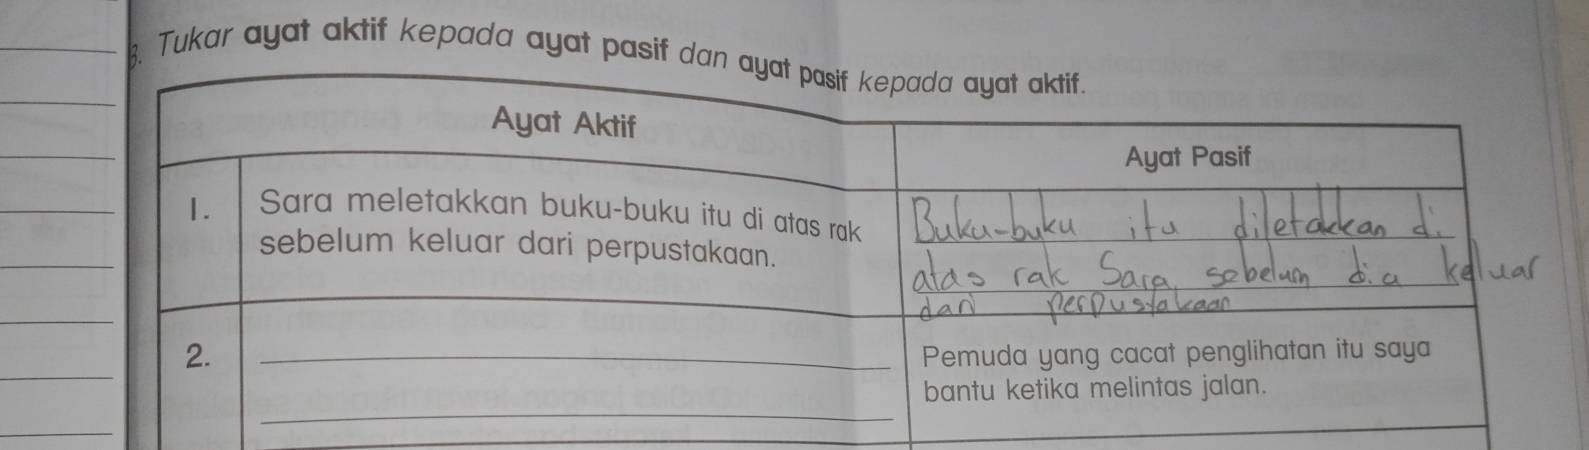 3. Tukar ayat aktif kepada ayat pasif dan ayat pasif kepada ayat aktif.
Ayat Aktif
Ayat Pasif
1. Sara meletakkan buku-buku itu di atas rak
sebelum keluar dari perpustakaan.
Buku-buku itu diletakkan di
atas rak Sara sebelum dia keluar
dari perpustakaan
2.
Pemuda yang cacat penglihatan itu saya
bantu ketika melintas jalan.